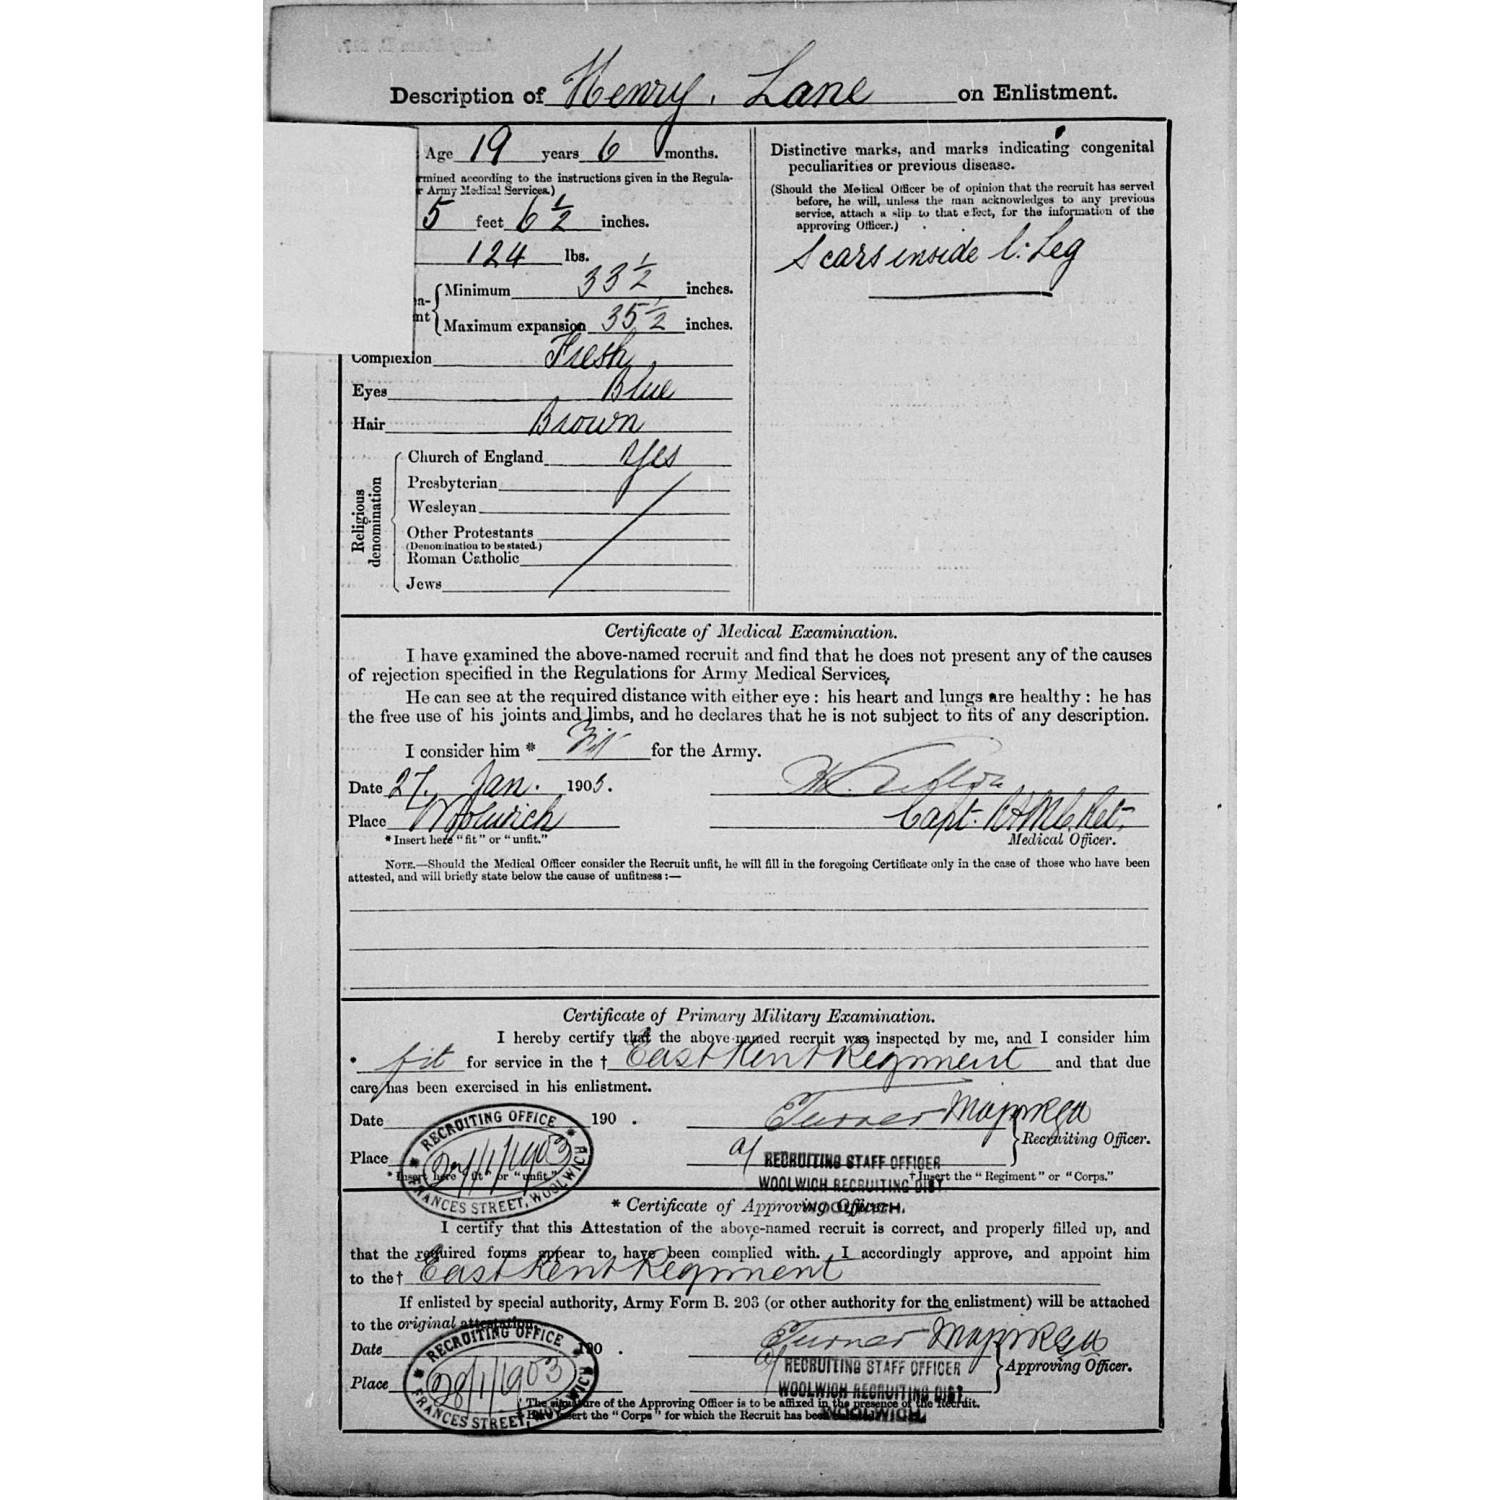 Description of Henry. Lane on Enlistment.
Age 19 years 6 months.
rmined according to the instructions given in the Regula-
r Army Medical Services.)
5 feet 6 1/2 inches.
124 lbs.
Minimum 33 1/2 inches.
Maximum expansion 35 1/2 inches.
Complexion Fresh
Eyes Blue
Hair Brown
Religious denomination
Church of England Yes
Presbyterian
Wesleyan
Other Protestants
(Denomination to be stated.)
Roman Catholic
Jews
Distinctive marks, and marks indicating congenital
peculiarities or previous disease.
(Should the Medical Officer be of opinion that the recruit has served
before, he will, unless the man acknowledges to any previous
service, attach a slip to that effect, for the information of the
approving Officer.)
Scars inside l: Leg
Certificate of Medical Examination.
I have examined the above-named recruit and find that he does not present any of the causes
of rejection specified in the Regulations for Army Medical Services.
He can see at the required distance with either eye: his heart and lungs are healthy: he has
the free use of his joints and limbs, and he declares that he is not subject to fits of any description.
I consider him * Fit for the Army.
Date 27. Jan. 1903.
Place Woolwich
Capt.
*Insert here "fit" or "unfit."
Medical Officer.
NOTE.—Should the Medical Officer consider the Recruit unfit, he will fill in the foregoing Certificate only in the case of those who have been
attested, and will briefly state below the cause of unfitness:—
Certificate of Primary Military Examination.
I hereby certify that the above-named recruit was inspected by me, and I consider him
* fit for service in the † East Kent Regiment and that due
care has been exercised in his enlistment.
Date 190 .
Turner Major RGA
Recruiting Officer.
Place
RECRUITING OFFICE
27/1/1903
FRANCES STREET, WOOLWICH
RECRUITING STAFF OFFICER
WOOLWICH RECRUITING DIST
WOOLWICH.
*Insert here "fit" or "unfit."
†Insert the "Regiment" or "Corps."
* Certificate of Approving Officer.
I certify that this Attestation of the above-named recruit is correct, and properly filled up, and
that the required forms appear to have been complied with. I accordingly approve, and appoint him
to the† East Kent Regiment
If enlisted by special authority, Army Form B. 203 (or other authority for the enlistment) will be attached
to the original attestation.
Date 190 .
Turner Major RGA
Approving Officer.
Place
RECRUITING OFFICE
28/1/1903
FRANCES STREET, WOOLWICH
RECRUITING STAFF OFFICER
WOOLWICH RECRUITING DIST
WOOLWICH
* The signature of the Approving Officer is to be affixed in the presence of the Recruit.
† Here insert the "Corps" for which the Recruit has been